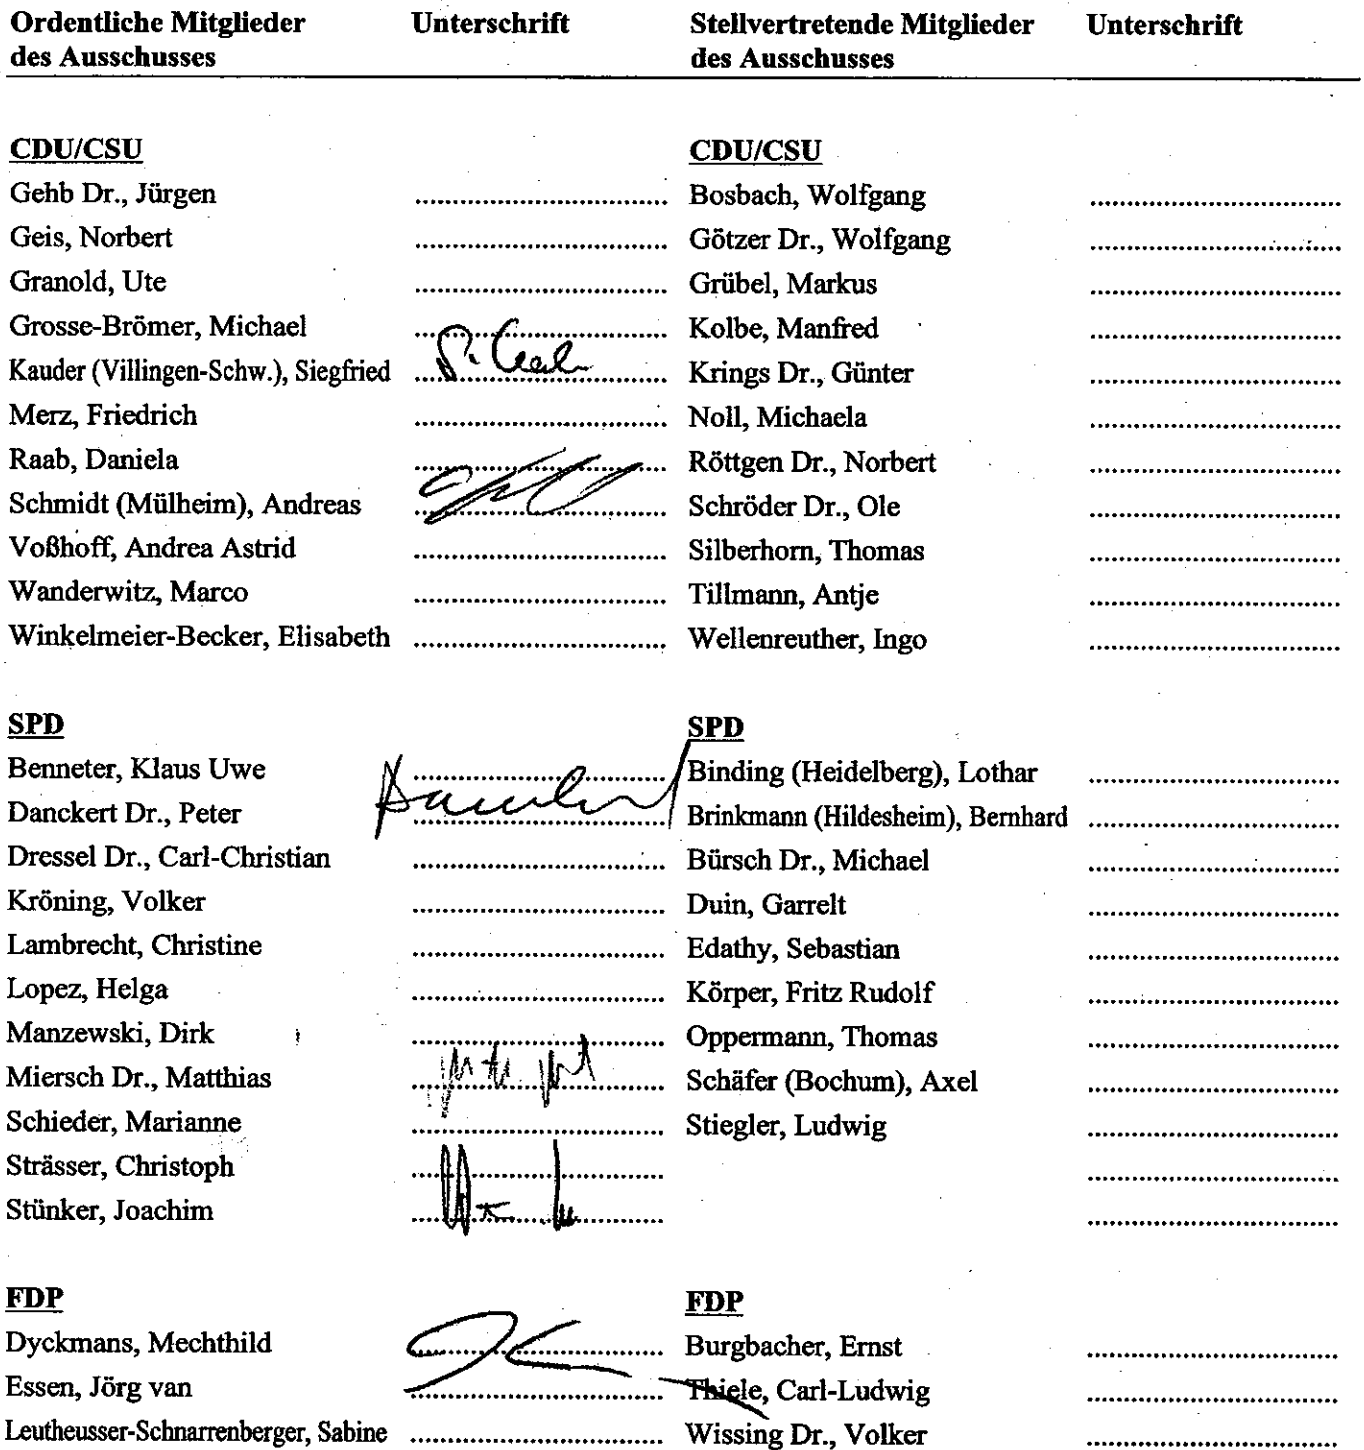 Ordentliche Mitglieder Unterschrift Stellvertretende Mitglieder Unterschrift
des Ausschusses des Ausschusses
CDU/CSU CDU/CSU
Gehb Dr., Jürgen ........................................ Bosbach, Wolfgang ........................................
Geis, Norbert ........................................ Götzer Dr., Wolfgang ........................................
Granold, Ute ........................................ Grübel, Markus ........................................
Grosse-Brömer, Michael ........................................ Kolbe, Manfred ........................................
Kauder (Villingen-Schw.), Siegfried ........................................ Krings Dr., Günter ........................................
Merz, Friedrich ........................................ Noll, Michaela ........................................
Raab, Daniela ........................................ Röttgen Dr., Norbert ........................................
Schmidt (Mülheim), Andreas ........................................ Schröder Dr., Ole ........................................
Voßhoff, Andrea Astrid ........................................ Silberhorn, Thomas ........................................
Wanderwitz, Marco ........................................ Tillmann, Antje ........................................
Winkelmeier-Becker, Elisabeth ........................................ Wellenreuther, Ingo ........................................
SPD SPD
Benneter, Klaus Uwe ........................................ Binding (Heidelberg), Lothar ........................................
Danckert Dr., Peter ........................................ Brinkmann (Hildesheim), Bernhard ........................................
Dressel Dr., Carl-Christian ........................................ Bürsch Dr., Michael ........................................
Kröning, Volker ........................................ Duin, Garrelt ........................................
Lambrecht, Christine ........................................ Edathy, Sebastian ........................................
Lopez, Helga ........................................ Körper, Fritz Rudolf ........................................
Manzewski, Dirk ........................................ Oppermann, Thomas ........................................
Miersch Dr., Matthias ........................................ Schäfer (Bochum), Axel ........................................
Schieder, Marianne ........................................ Stiegler, Ludwig ........................................
Strässer, Christoph ........................................ ........................................
Stünker, Joachim ........................................ ........................................
FDP FDP
Dyckmans, Mechthild ........................................ Burgbacher, Ernst ........................................
Essen, Jörg van ........................................ Thiele, Carl-Ludwig ........................................
Leutheusser-Schnarrenberger, Sabine ........................................ Wissing Dr., Volker ........................................